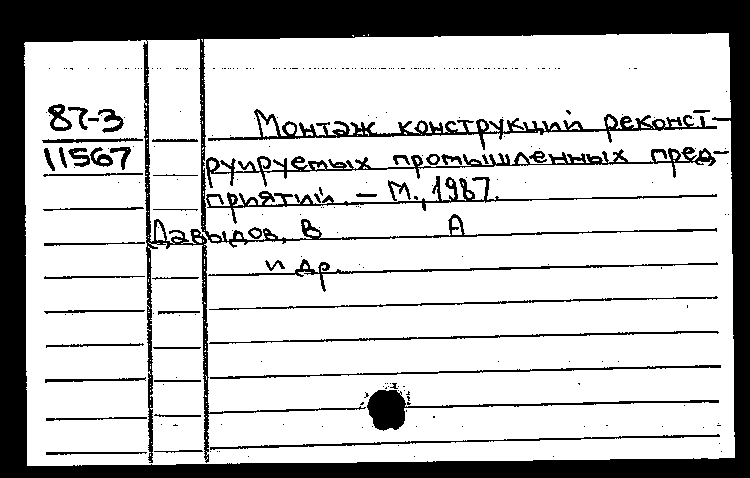 87-3 Монтаж конструкций реконст-
11567 руируемых промышленных пред-
приятий. — М., 1987.
Давыдов, В А
и др.